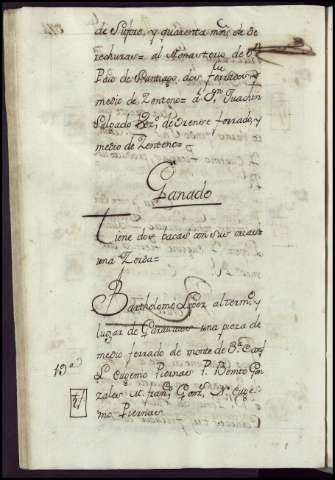 de Supre, y quarenta mrs de de
rechuras= al Monasterio de Sn
Paio de Santiago, dos ferrados y
medio de Zenteno= a Dn Juachin
Salgado Vezo de Orense ferrado y
medio de Zenteno=
Ganado
Tiene dos bacas con sus crias
una Zerda=
Bartholome Lopez al termo y
lugar de una pieza de
19a medio ferrado de monte de 3a
L. Eugenio Piernas P. Benito Gon
zales M. franco Gonz N. Euge
nio Piernas